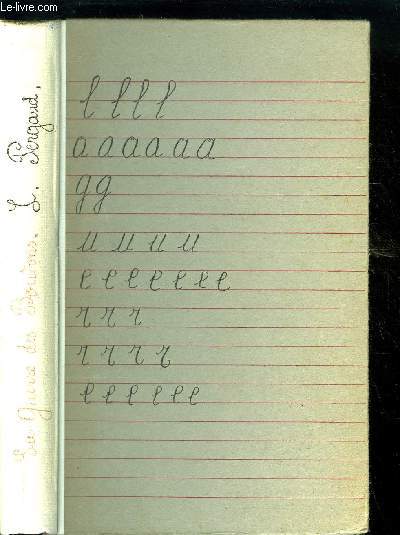 Le-livre.com
La Guerre des Boutons. L. Pergaud.
l l l l
a a a a a a
g g
u u u u
e e e e e e e
r r r
r r r r
e e e e e e